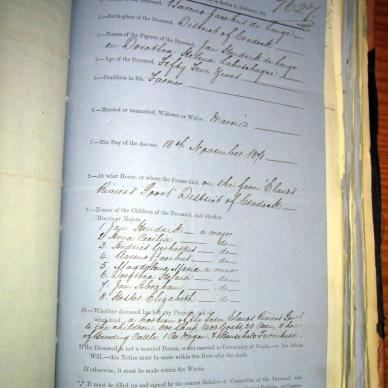 1627/
Barend Jacobus de Lange
2.—Birth-place of the Deceased, District of Cradock
3.—Names of the Parents of the Deceased, Jan Hendrik de Lange
en Dorothea Helena
4.—Age of the Deceased, Fifty Five Years
5.—Condition in life, Farmer
6.—Married or unmarried, Widower or Widow, Married
7.—The Day of the decease, 18th November 1871
8.—At what House, or where the Person died, on the farm Claas
Poort District of Cradock
9.—Names of the Children of the Deceased, and whether
Minors or Majors
1 Jan Hendrik — a major
2 Anna Cecilia — do —
3 Andries Gerhardus — do —
4 Barend Jacobus — do —
5 Magdalena Maria a minor
6 Dorothea Helena — do —
7 Jan Abraham — do —
8 Hester Elizabeth — do —
10.—Whether deceased has left any Property, and of
what kind, a portion of the farm Claas Poort
to the children. 600 Sheep 400 Goats 20 Oxen, 8 head
of Breeding Cattle, 1 Ox Wagon, & Household Furniture
If the Deceased is not a married Person, or not married in Community of Goods,—or has left no
Will,—this Notice must be made within Six Days after the death.
If otherwise, it must be made within Six Weeks
It must be filled up and signed by the nearest Relative or Connexion of the Deceased, who